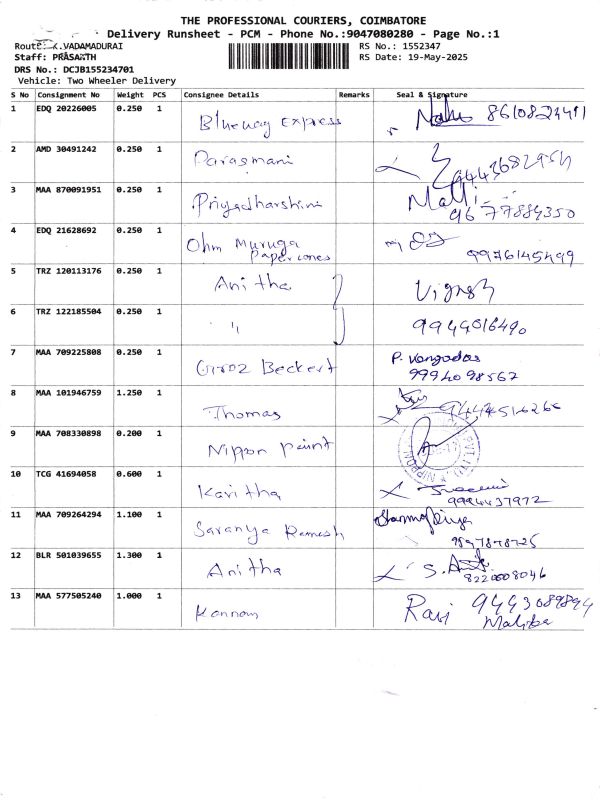 THE PROFESSIONAL COURIERS, COIMBATORE
Delivery Runsheet - PCM - Phone No.:9047080280 - Page No.:1
Route: K.VADAMADURAI
RS No.: 1552347
Staff: PRASANTH
RS Date: 19-May-2025
DRS No.: DCJB155234701
Vehicle: Two Wheeler Delivery
S No Consignment No Weight PCS Consignee Details Remarks Seal & Signature
1 EDQ 20226005 0.250 1 Blueway Express 8610824411
2 AMD 30491242 0.250 1 Parasmani
3 MAA 870091951 0.250 1 Priyadharshini
9677884350
4 EDQ 21628692 0.250 1 Ohm Muruga
Papercones 9976145499
5 TRZ 120113176 0.250 1 Anitha Vignesh
6 TRZ 122185504 0.250 1 〃
7 MAA 709225808 0.250 1 Groz Beckert P. Vangadas
9994098567
8 MAA 101946759 1.250 1 Thomas
9 MAA 708330898 0.200 1 Nippon paint
10 TCG 41694058 0.600 1 Kavitha
9994437972
11 MAA 709264294 1.100 1 Saranya Ramesh
12 BLR 501039655 1.300 1 Anitha
8220008046
13 MAA 577505240 1.000 1 Kannan Ravi